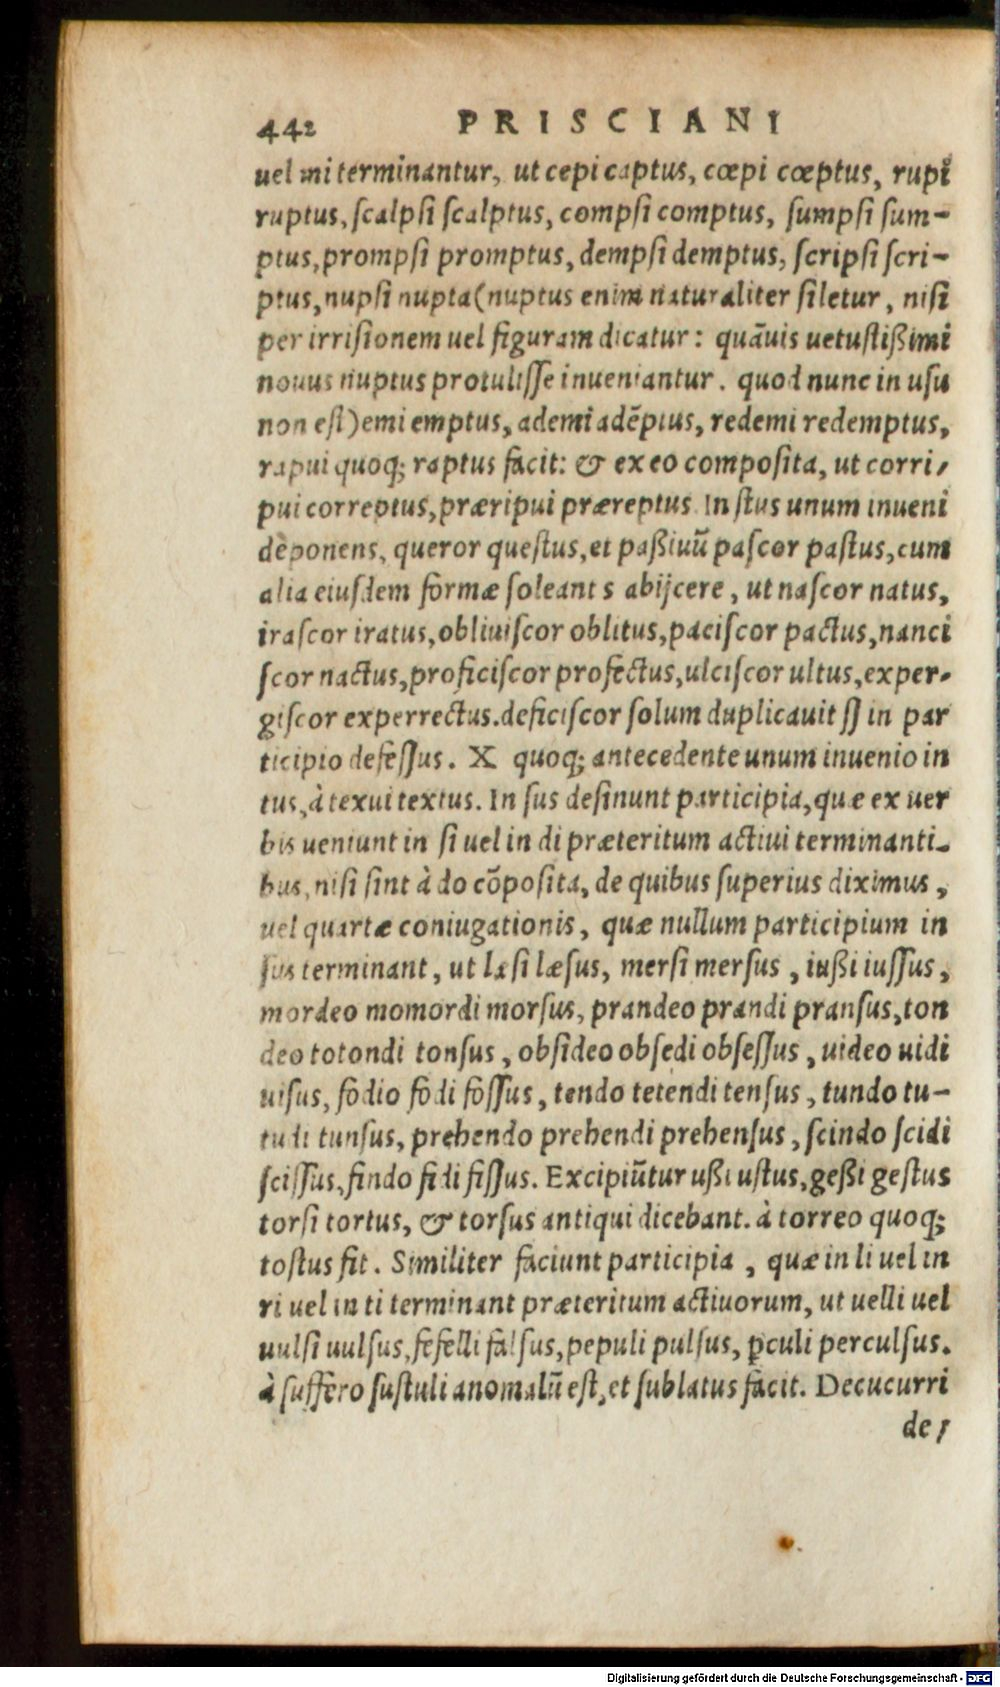 442 PRISCIANI
uel mi terminantur, ut cepi captus, cœpi cœptus, rupi
ruptus, ſcalpſi ſcalptus, compſi comptus, ſumpſi ſum-
ptus, prompſi promptus, dempſi demptus, ſcripſi ſcri-
ptus, nupſi nupta(nuptus enim naturaliter ſiletur, niſi
per irriſionem uel figuram dicatur: quāuis uetuſtißimi
nouus nuptus protuliſſe inueniantur. quod nunc in uſu
non eſt)emi emptus, ademi adēptus, redemi redemptus,
rapui quoq; raptus facit: & ex eo compoſita, ut corri-
pui correptus, præripui præreptus. In ſtus unum inueni
deponens, queror queſtus, et paßiuū paſcor paſtus, cum
alia eiuſdem formæ ſoleant s abijcere, ut naſcor natus,
iraſcor iratus, obliuiſcor oblitus, paciſcor pactus, nanci
ſcor nactus, proficiſcor profectus, ulciſcor ultus, exper-
giſcor experrectus. deficiſcor ſolum duplicauit ſſ in par
ticipio defeſſus. X quoq; antecedente unum inuenio in
tus, à texui textus. In ſus deſinunt participia, quæ ex uer
bis ueniunt in ſi uel in di præteritum actiui terminanti-
bus, niſi ſint à do cōpoſita, de quibus ſuperius diximus,
uel quartæ coniugationis, quæ nullum participium in
ſus terminant, ut læſi læſus, merſi merſus, iußi iuſſus,
mordeo momordi morſus, prandeo prandi pranſus, ton
deo totondi tonſus, obſideo obſedi obſeſſus, uideo uidi
uiſus, fodio fodi foſſus, tendo tetendi tenſus, tundo tu-
tudi tunſus, prehendo prehendi prehenſus, ſcindo ſcidi
ſciſſus, findo fidi fiſſus. Excipiūtur ußi uſtus, geßi geſtus
torſi tortus, & torſus antiqui dicebant. à torreo quoq;
toſtus fit. Similiter faciunt participia, quæ in li uel in
ri uel in ti terminant præteritum actiuorum, ut uelli uel
uulſi uulſus, fefelli falſus, pepuli pulſus, ꝑculi perculſus.
à ſuffero ſuſtuli anomalū eſt, et ſublatus facit. Decucurri
de-
Digitalisierung gefördert durch die Deutsche Forschungsgemeinschaft - DFG